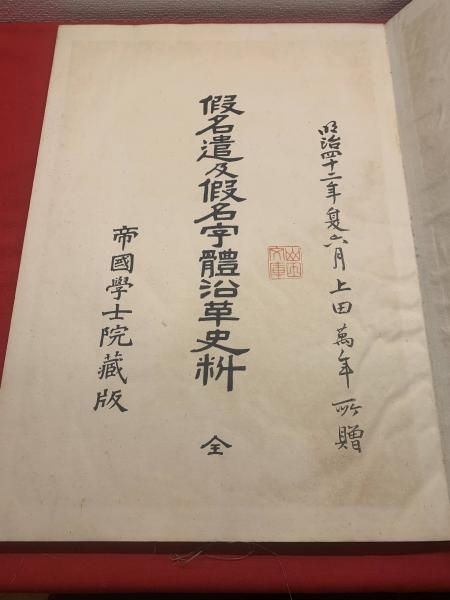 明治四十二年夏六月上田萬年所贈
山田文庫
假名遣及假名字體沿革史料 全
帝國學士院藏版